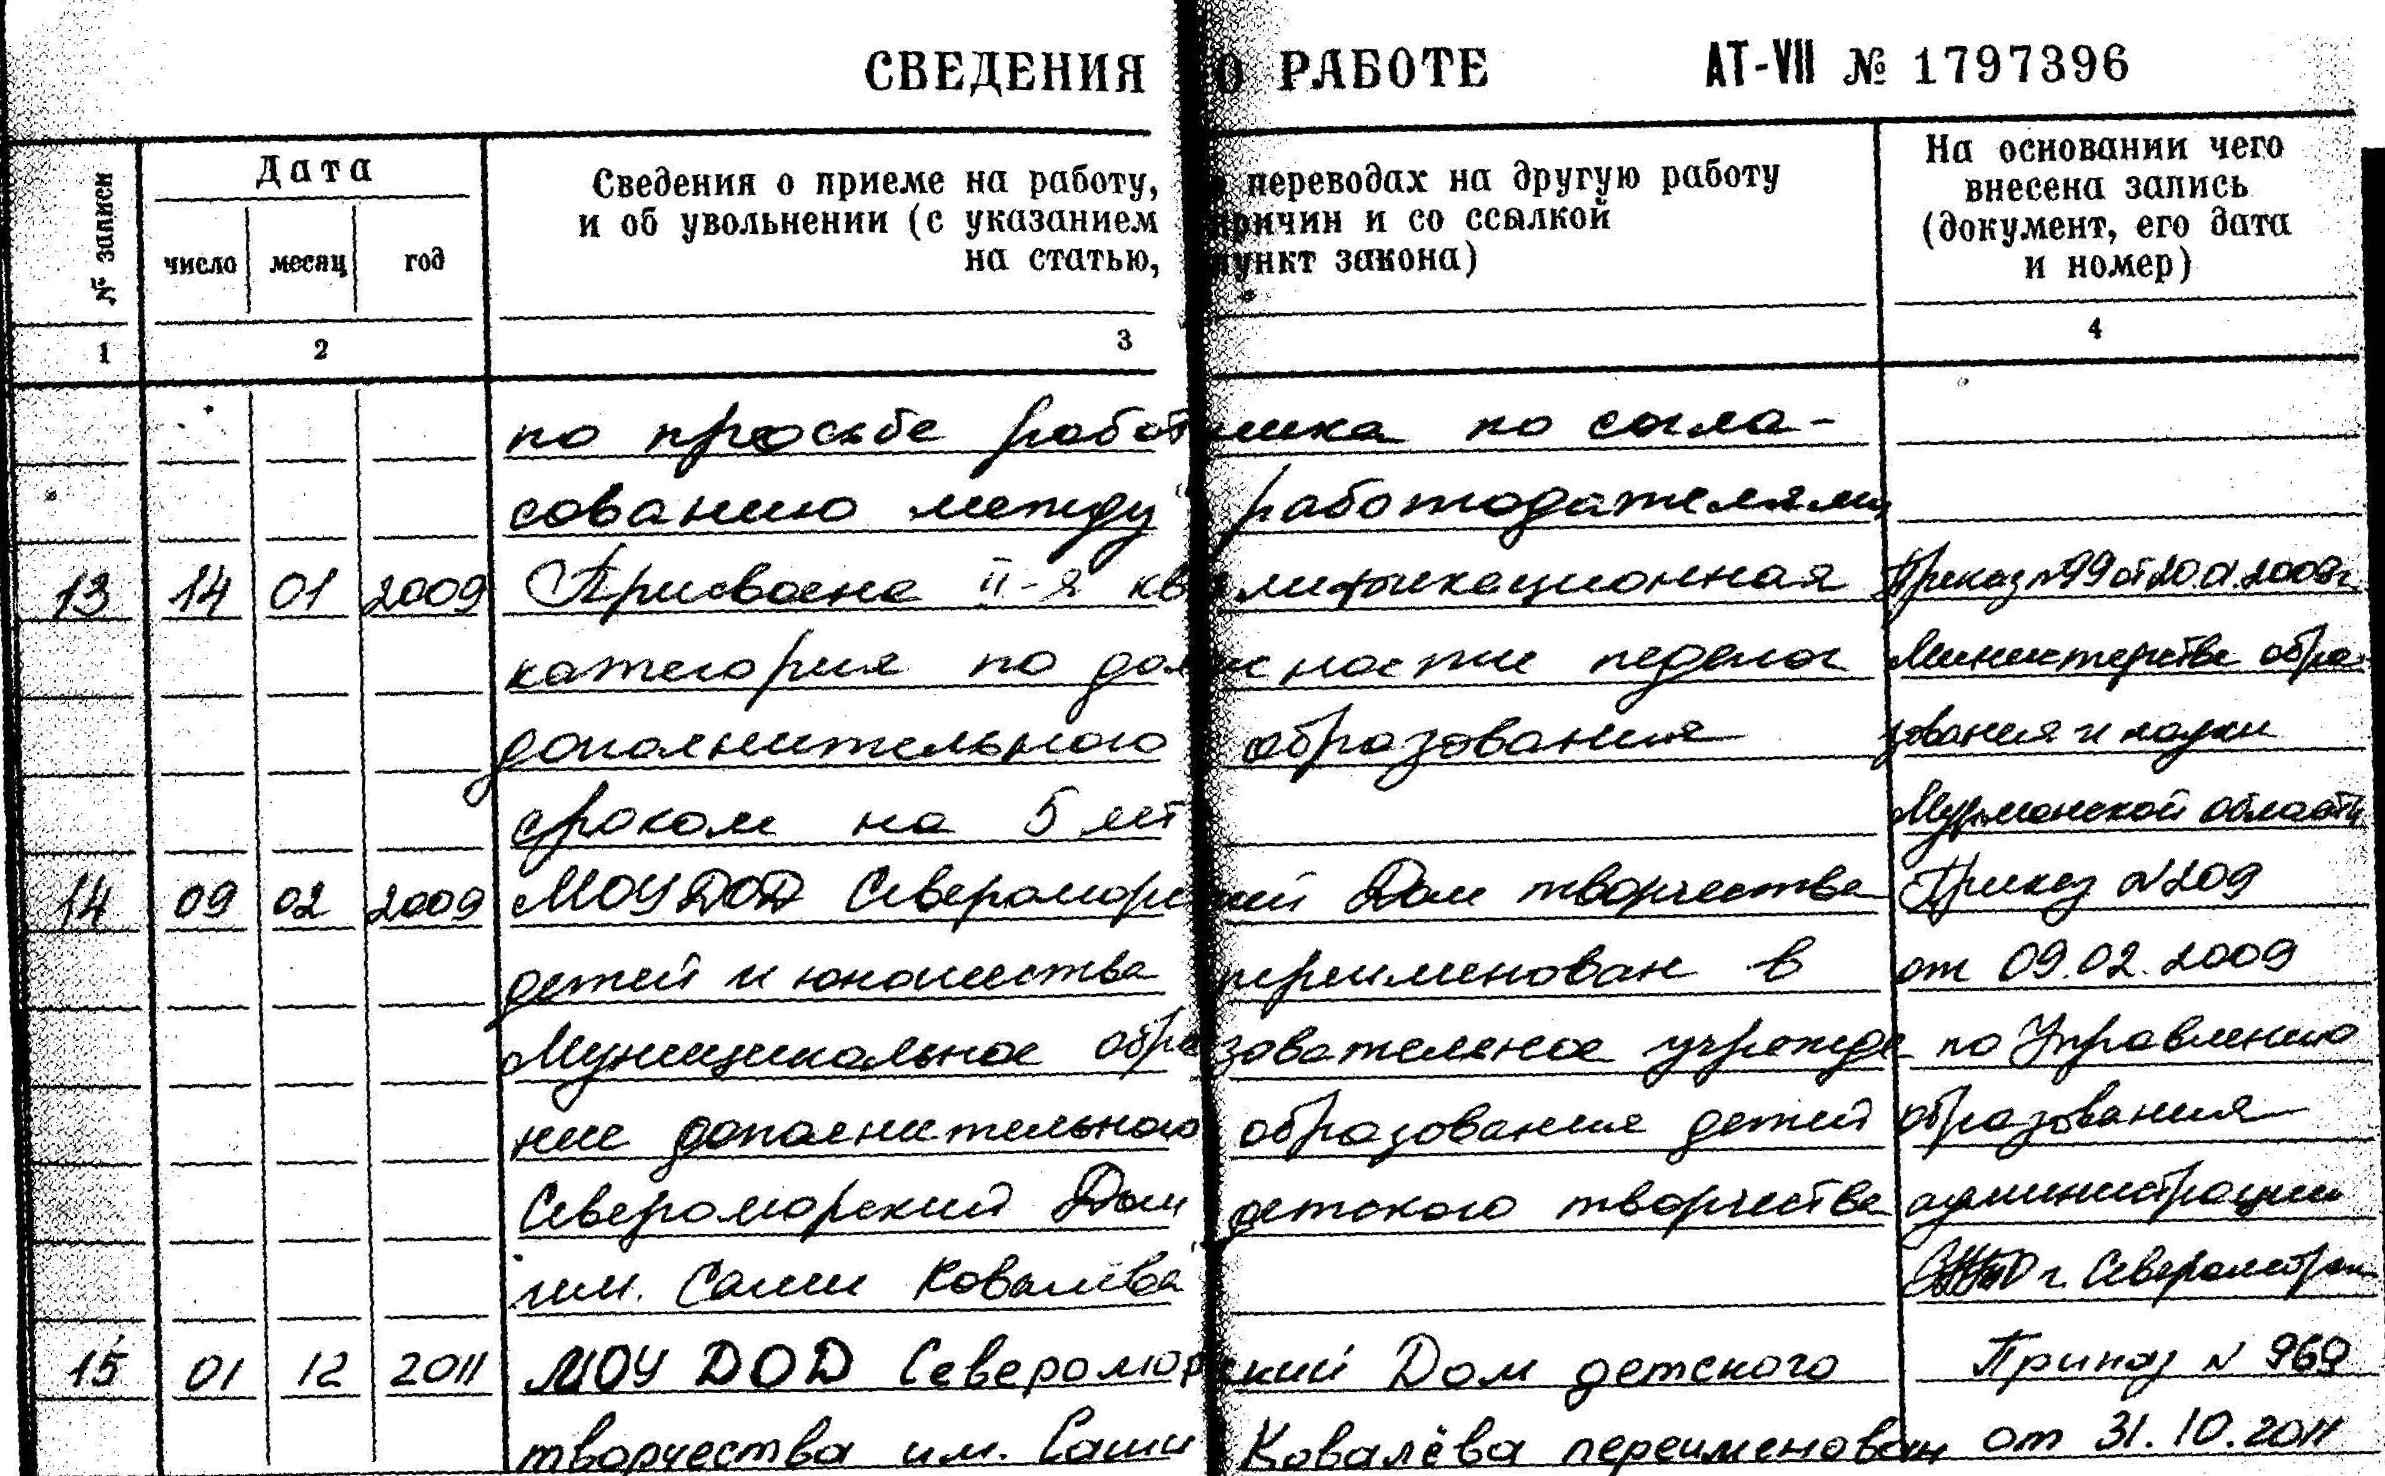 СВЕДЕНИЯ О РАБОТЕ АТ-VII № 1797396
№ записи
Дата
число месяц год
Сведения о приеме на работу, переводах на другую работу
и об увольнении (с указанием причин и со ссылкой
на статью, пункт закона)
На основании чего
внесена запись
(документ, его дата
и номер)
1 2 3 4
по просьбе работника по согла-
сованию между работодателями
13 14 01 2009 Присвоена II-я квалификационная Приказ №99 от 20.01.2009г.
категория по должности педагог Министерства обра-
дополнительного образования зования и науки
сроком на 5 лет Мурманской области
14 09 02 2009 МОУДОД Североморский Дом творчества Приказ №209
детей и юношества переименован в от 09.02.2009
Муниципальное образовательное учрежде по Управлению
ние дополнительного образования детей образования
Североморский Дом детского творчества администрации
им. Саши Ковалёва г. Североморск
15 01 12 2011 МОУ ДОД Североморский Дом детского Приказ № 969
творчества им. Саши Ковалёва переименован от 31.10.2011